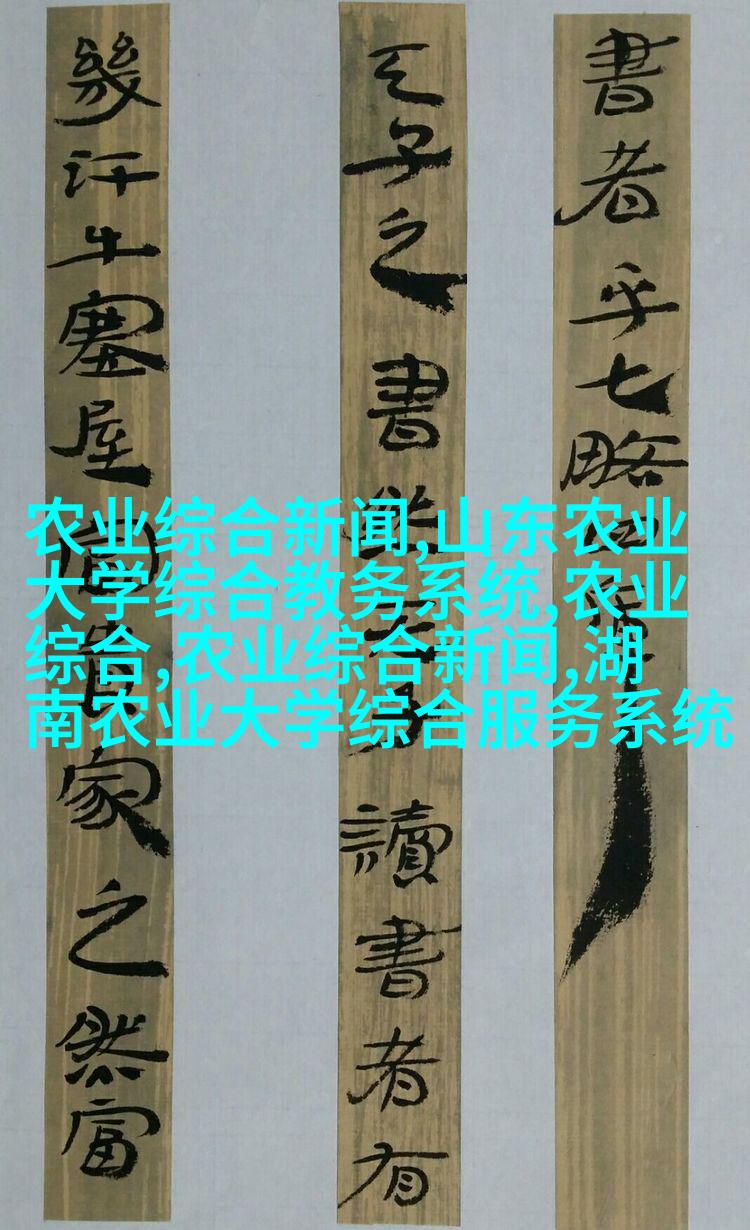 書者乎七略四庫
天子之書然天子讀書者有
幾汗牛塞屋富貴家之然富
农业综合新闻,山东农业
大学综合教务系统,农业
综合,农业综合新闻,湖
南农业大学综合服务系统